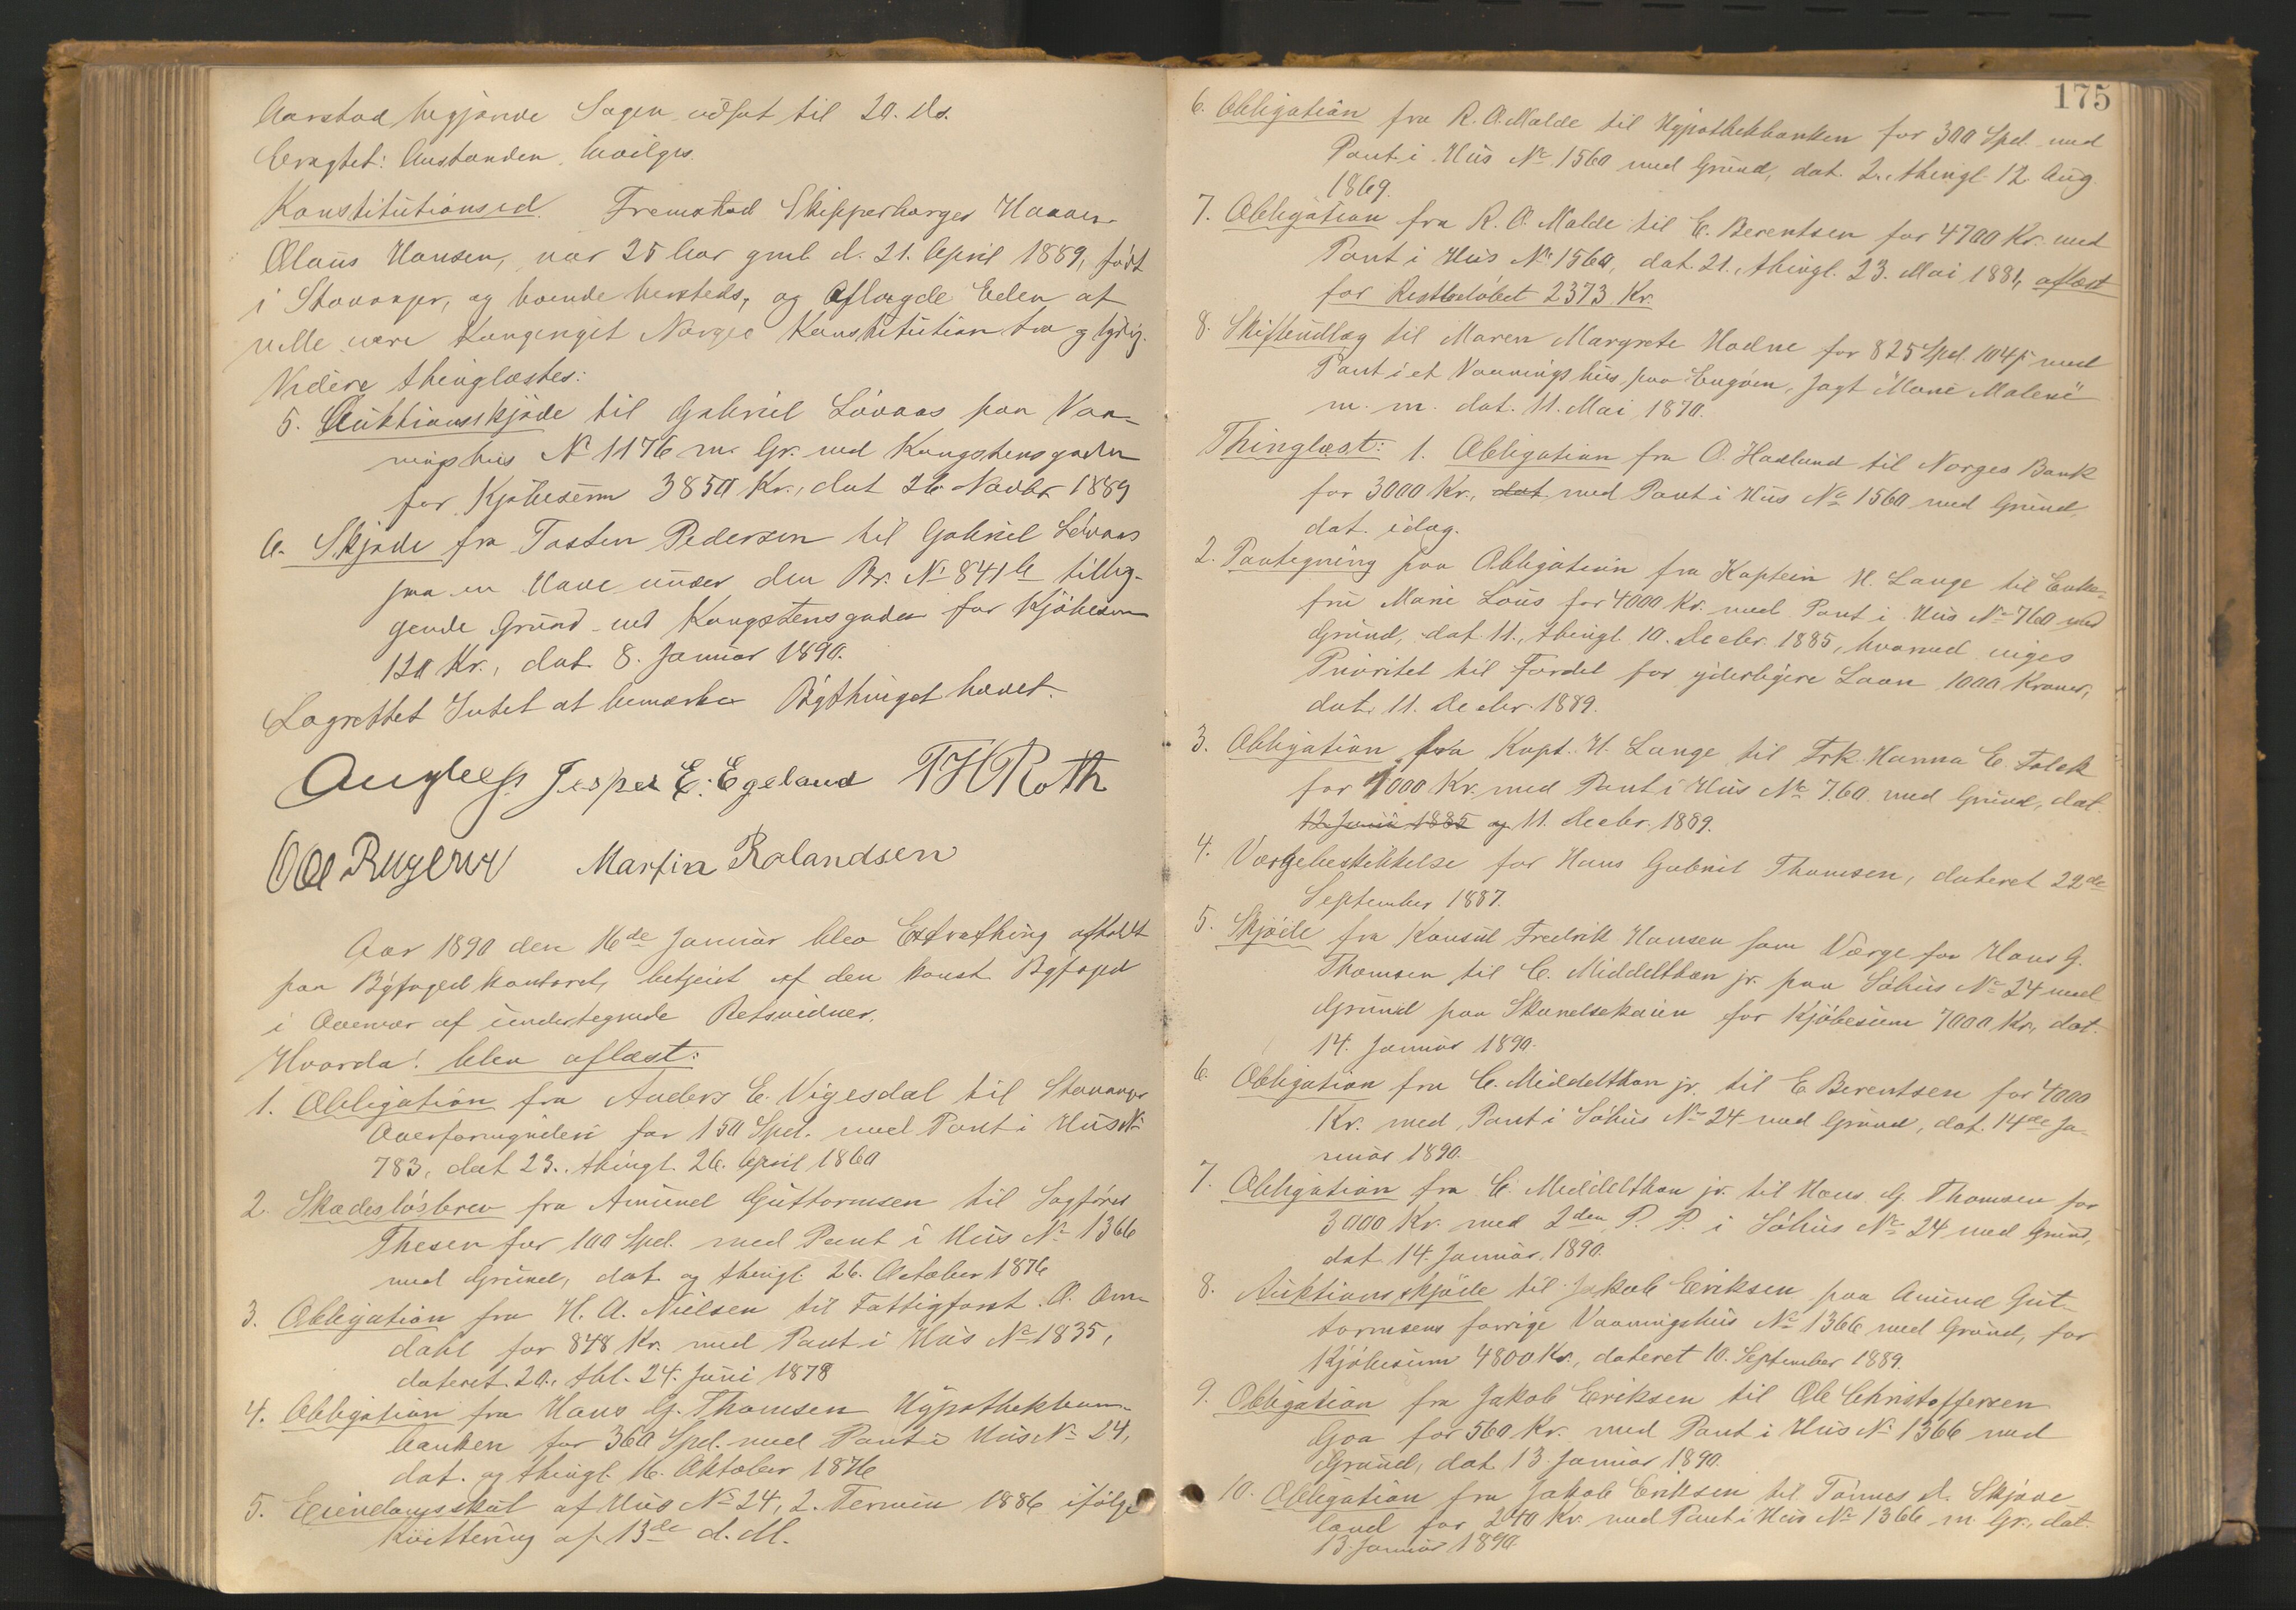 Aarstad begjærede Sagen udsat til 20. ds.
Eragtet: Anstanden bevilges.
Konstitutionsed. Fremstod Skipperborger
Olaus Hansen, var 25 Aar gml. d. 21. April 1889, født
i Stavanger, og boende hersteds, og aflagde Eden at
ville være Kongeriget Norges Konstitution tro og lydig.
Videre thinglæstes:
5. Auktionsskjøde til Gabriel Lövaas paa Vaa-
ningshus No 1176 m. Gr. ved Kongstensgaden
for Kjøbesum 3850 Kr., dat 26 Novbr 1889
6. Skjøde fra Tosten Pedersen til Gabriel Lövaas
paa en Have under den Br. No 841 b tillig-
gende Grund ved Kongstensgaden for Kjøbesum
120 Kr., dat. 8. Januar 1890.
Lagrettet Intet at bemærke Bythinget hævet.
Jesper E. Egeland TH Roth
Martin Rolandsen
Aar 1890 den 16de Januar blev Extrathing afholdt
paa Byfogedkontoret, betjent af den konst. Byfoged
i Overvær af undertegnede Retsvidner.
Hvorda: blev aflæst:
1. Obligation fra Anders E. Vigesdal til Stavanger
Overformynderi for 150 Spd. med Pant i Hus No
783, dat 23. thingl. 26. April 1860
2. Skadesløsbrev fra Amund Guttormsen til Sagfører
Thesen for 100 Spd. med Pant i Hus No 1366
med Grund, dat og thingl. 26. October 1876
3. Obligation fra H. A. Nielsen til Fattigforst. O. Om-
dahl for 848 Kr. med Pant i Hus No 1835,
dateret 20., thl. 24. Juni 1878
4. Obligation fra Hans G. Thomsen Hypothekban-
banken for 360 Spd. med Pant i Hus No 24,
dat. og thingl. 16. Oktober 1876
5. Eiendomsskat af Hus No 24, 2. Termin 1886 ifølge
Kvittering af 13de d. M.
175
6. Obligation fra R. O. Malde til Hypothekbanken for 300 Spd. med
Pant i Hus No 1560 med Grund, dat. 2., thingl. 12. Aug.
1869.
7. Obligation fra R. O. Malde til E. Berentsen for 4700 Kr. med
Pant i Hus No 1560, dat. 21., thingl. 23. Mai 1881, aflæst
for Restbeløbet 2373 Kr.
8. Skifteudlæg til Maren Margrete Hodne for 825 Spd. 104 β med
Pant i et Vaaningshus paa Engøen, Jagt "Mane Malene"
m. m. dat. 11. Mai 1870.
Thinglæst: 1. Obligation fra O. Hadland til Norges Bank
for 3000 Kr., dat med Pant i Hus No 1560 med Grund,
dat. idag.
2. Paategning paa Obligation fra Kaptein H. Lange til Enke-
fru Marie Lous for 4000 Kr. med Pant i Hus No 760 med
Grund, dat. 11., thingl. 10. Decbr. 1885, hvorved viges
Prioritet til Fordel for yderligere Laan 1000 Kroner,
dat. 11. Decbr. 1889.
3. Obligation fra Kapt. H. Lange til Frk. Hanna E. Falck
for 1000 Kr. med Pant i Hus No 760 med Grund, dat.
12 Juni 1885 og 11. Decbr. 1889.
4. Værgebeskikkelse for Hans Gabriel Thomsen, dateret 22de
September 1887.
5. Skjøde fra Konsul Fredrik Hansen som Værge for Hans G.
Thomsen til C. Middelthon jr. paa Søhus No 24 med
Grund paa Skandsekaien for Kjøbesum 7000 Kr, dat.
14. Januar 1890.
6. Obligation fra C. Middelthon jr. til E. Berentsen for 4000
Kr. med Pant i Søhus No 24 med Grund, dat. 14de Ja-
nuar 1890.
7. Obligation fra C. Middelthon jr. til Hans G. Thomsen for
3000 Kr. med 2den P. P. i Søhus No 24 med Grund,
dat. 14. Januar 1890.
8. Auktionsskjøde til Jakob Eriksen paa Amund Gut-
tormsens forrige Vaaningshus No 1366 med Grund, for
Kjøbesum 4800 Kr., dateret 10. September 1889.
9. Obligation fra Jakob Eriksen til Ole Christoffersen
Goa for 560 Kr. med Pant i Hus No 1366 med
Grund, dat. 13. Januar 1890.
10. Obligation fra Jakob Eriksen til Tönnes d. Skjæve-
land for 240 Kr. med Pant i Hus No 1366 m. Gr., dat.
13. Januar 1890.